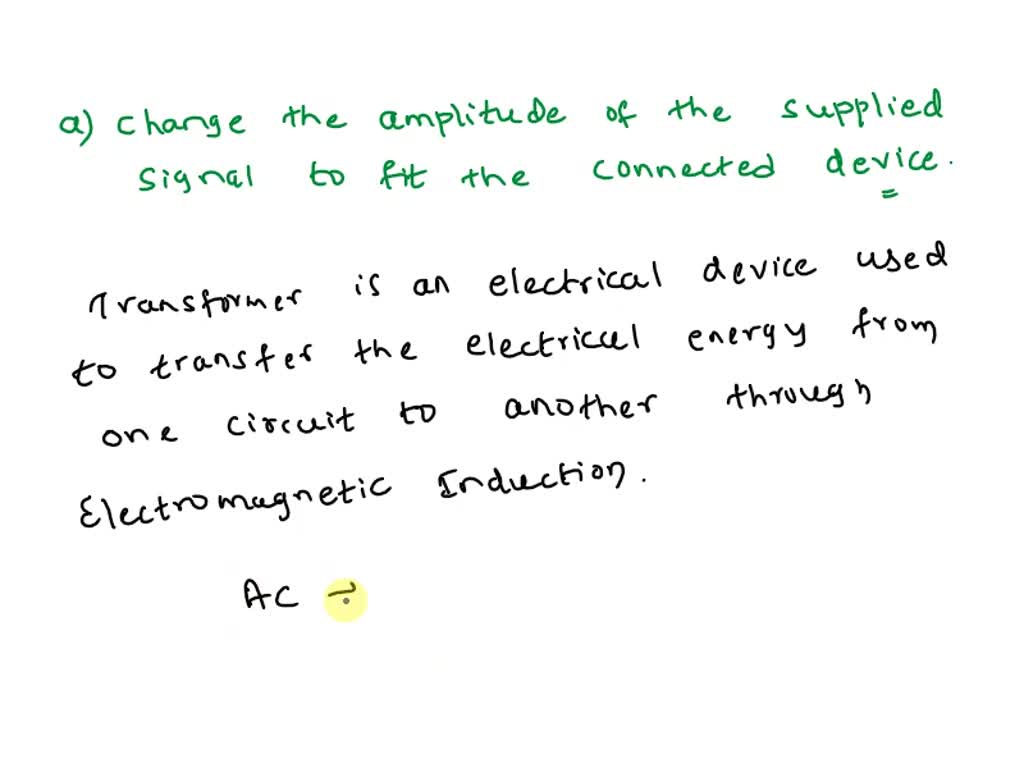 a) change the amplitude of the supplied
signal to fit the connected device.
Transformer is an electrical device used
to transfer the electrical energy from
one circuit to another through
Electromagnetic Induction.
AC